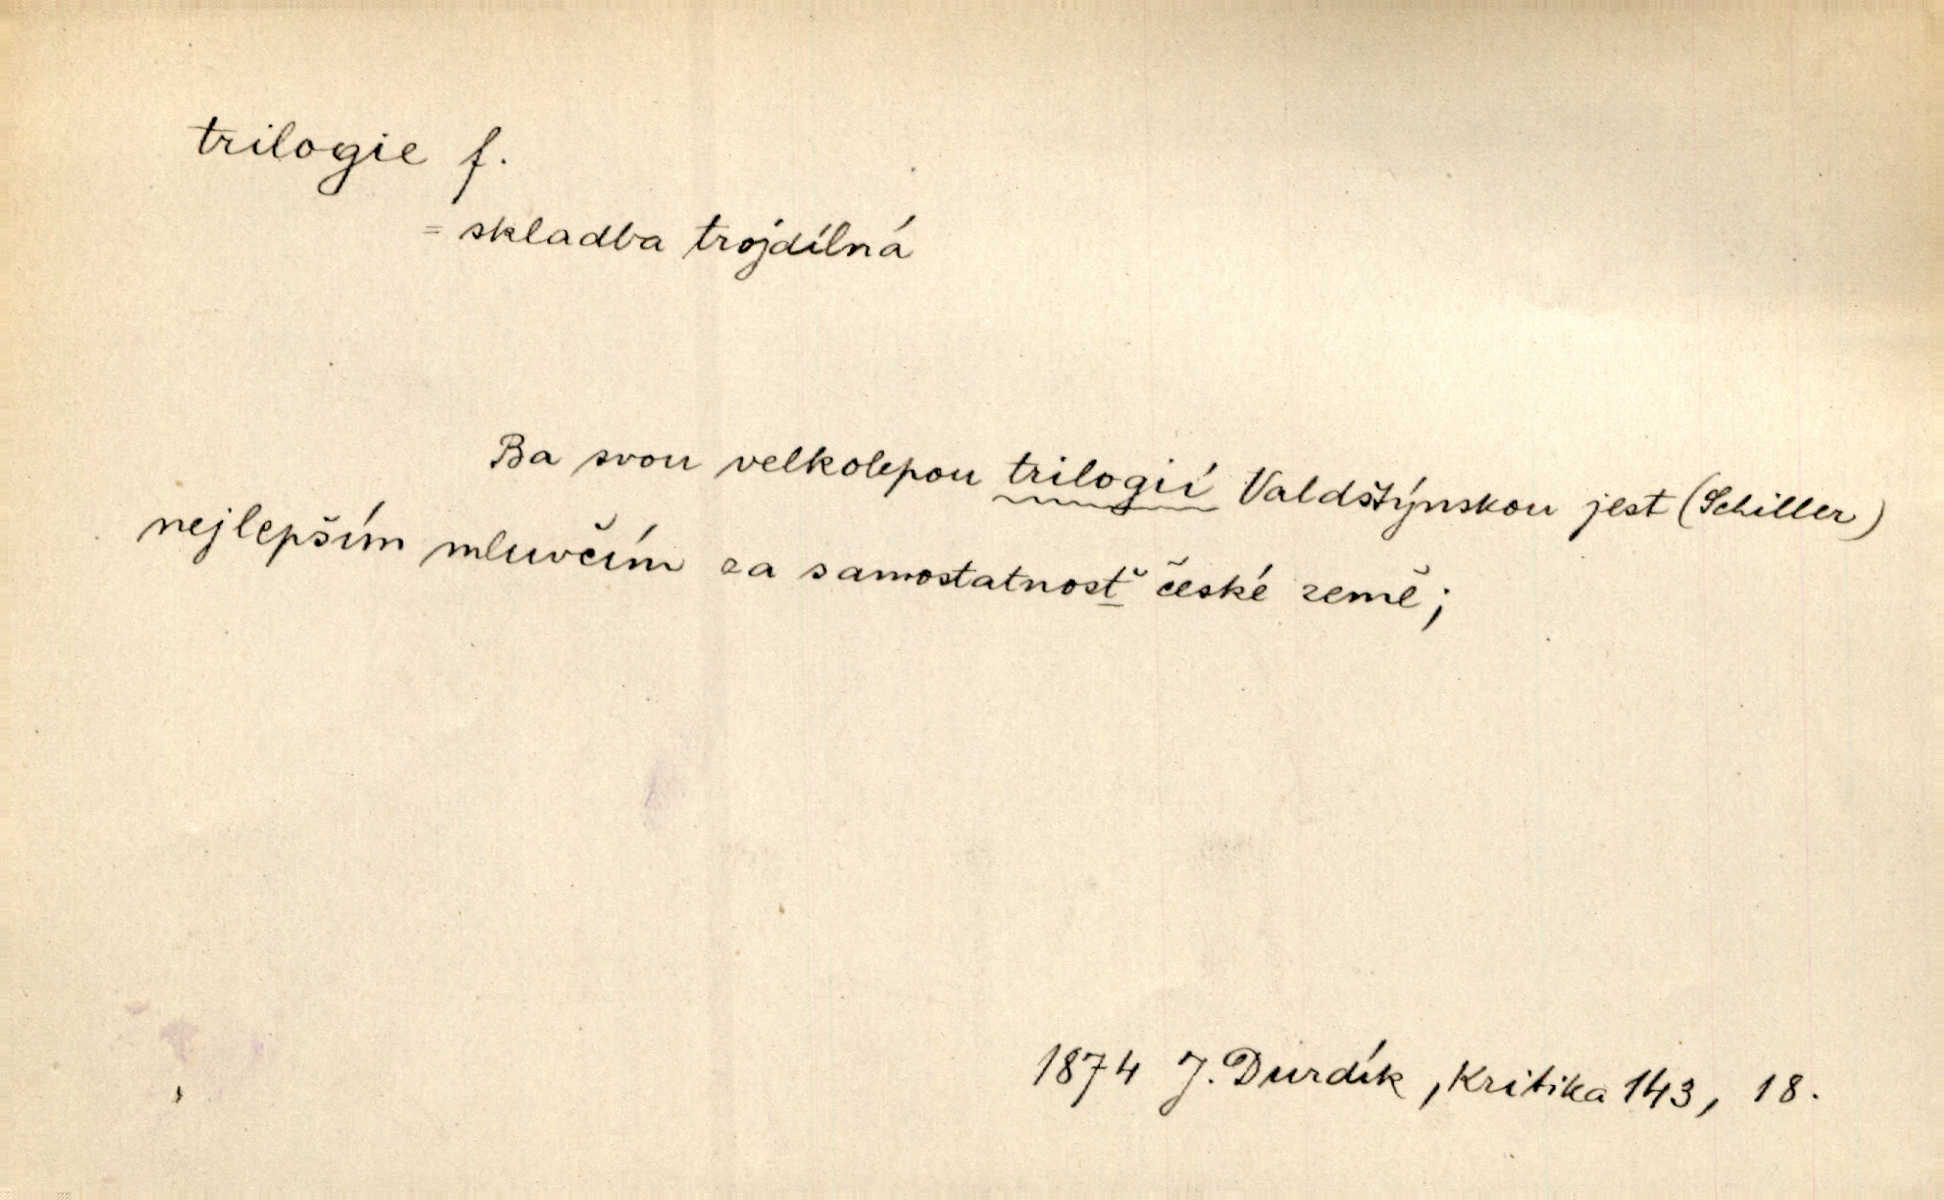 trilogie f.
= skladba trojdílná
Ba svou velkolepou trilogií Valdštýnskou jest (Schiller)
nejlepším mluvčím za samostatnosť české země;
1874 J. Durdík, Kritika 143, 18.